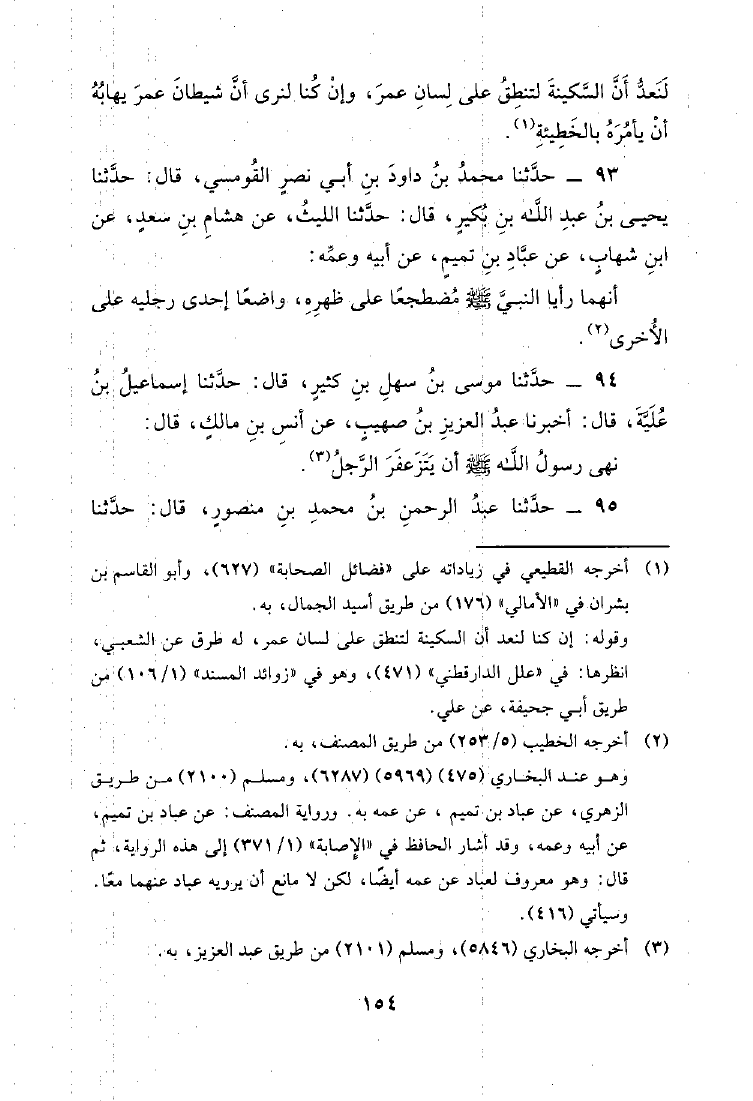 لَنَعدُّ أَنَّ السَّكينةَ لتنطِقُ على لِسانِ عمرَ، وإنْ كُنا لنرى أنَّ شيطانَ عمرَ يهابُهُ
أنْ يأمُرَهُ بالخَطِيئةِ(١).
٩٣ ـ حدَّثنا محمدُ بنُ داودَ بنِ أبي نصرٍ القُومسي، قال: حدَّثنا
يحيى بنُ عبدِ اللَّه بنِ بُكيرٍ، قال: حدَّثنا الليثُ، عن هشامِ بنِ سعدٍ، عن
ابنِ شهابٍ، عن عبَّادِ بنِ تميمٍ، عن أبيه وعمِّه:
أنهما رأيا النبيَّ ﷺ مُضطجعًا على ظهرِهِ، واضعًا إحدى رجليه على
الأُخرى(٢).
٩٤ ـ حدَّثنا موسى بنُ سهلِ بنِ كثيرٍ، قال: حدَّثنا إسماعيلُ بنُ
عُلَيَّةَ، قال: أخبرنا عبدُ العزيزِ بنُ صهيبٍ، عن أنسِ بنِ مالكٍ، قال:
نهى رسولُ اللَّه ﷺ أن يَتَزعفَرَ الرَّجلُ(٣).
٩٥ ـ حدَّثنا عبدُ الرحمنِ بنُ محمدِ بنِ منصورٍ، قال: حدَّثنا
(١) أخرجه القطيعي في زياداته على «فضائل الصحابة» (٦٢٧)، وأبو القاسم بن
بشران في «الأمالي» (١٧٦) من طريق أسيد الجمال، به.
وقوله: إن كنا لنعد أن السكينة لتنطق على لسان عمر، له طرق عن الشعبي،
انظرها: في «علل الدارقطني» (٤٧١)، وهو في «زوائد المسند» (١٠٦/١) من
طريق أبي جحيفة، عن علي.
(٢) أخرجه الخطيب (٢٥٣/٥) من طريق المصنف، به.
وهو عند البخاري (٤٧٥) (٥٩٦٩) (٦٢٨٧)، ومسلم (٢١٠٠) من طريق
الزهري، عن عباد بن تميم ، عن عمه به. ورواية المصنف: عن عباد بن تميم،
عن أبيه وعمه، وقد أشار الحافظ في «الإصابة» (٣٧١/١) إلى هذه الرواية، ثم
قال: وهو معروف لعباد عن عمه أيضًا، لكن لا مانع أن يرويه عباد عنهما معًا.
وسيأتي (٤١٦).
(٣) أخرجه البخاري (٥٨٤٦)، ومسلم (٢١٠١) من طريق عبد العزيز، به.
١٥٤